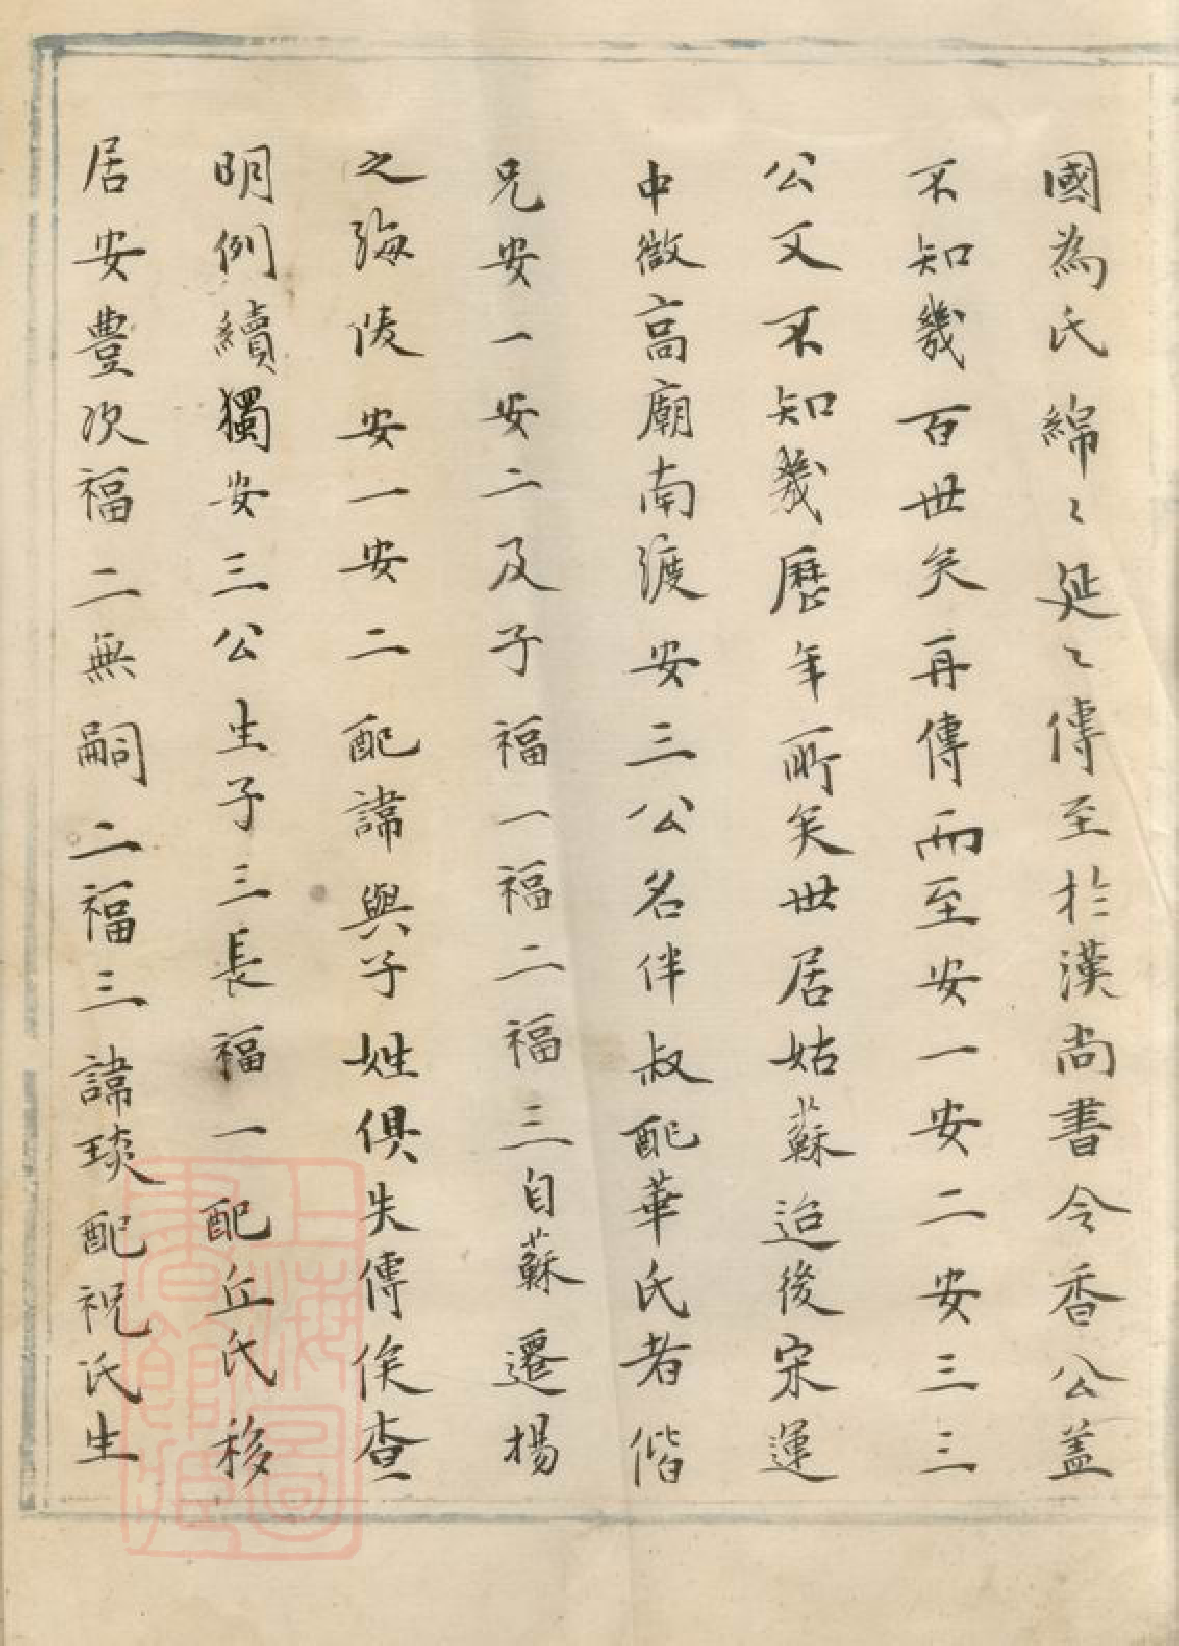 國為氏綿〻延〻傳至於漢尚書令香公盖
不知幾百世矣再傳而至安一安二安三三
公又不知幾歷年所矣世居姑蘇迨後宋運
中微高廟南渡安三公名伴叔配華氏者偕
兄安一安二及子福一福二福三自蘇遷揚
之海陵安一安二配諱與子姓俱失傳俟查
明例續獨安三公生子三長福一配丘氏移
居安豊次福二無嗣二福三諱琰配祝氏生
上海圖
書館藏